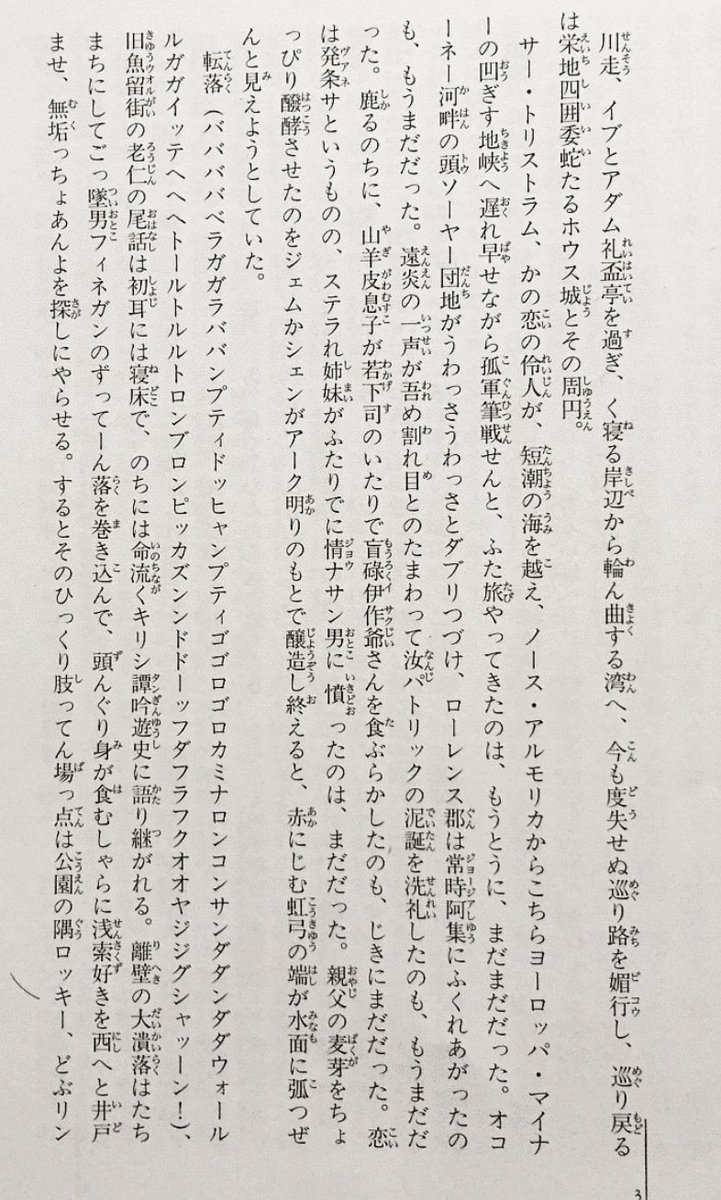 川走、イブとアダム礼盃亭を過ぎ、く寝る岸辺から輪ん曲する湾へ、今も度失せぬ巡り路を媚行し、巡り戻る
は栄地四囲委蛇たるホウス城とその周円。
サー・トリストラム、かの恋の伶人が、短潮の海を越え、ノース・アルモリカからこちらヨーロッパ・マイナ
ーの凹ぎす地峡へ遅れ早せながら孤軍筆戦せんと、ふた旅やってきたのは、もうとうに、まだまだだった。オコ
ーネー河畔の頭ソーヤー団地がうわっさうわっさとダブリつづけ、ローレンス郡は常時阿集にふくれあがったの
も、もうまだだった。遠炎の一声が吾め割れ目とのたまわって汝パトリックの泥誕を洗礼したのも、もうまだだ
った。鹿るのちに、山羊皮息子が若下司のいたりで盲碌伊作爺さんを食ぶらかしたのも、じきにまだだった。恋
は発条サというものの、ステラれ姉妹がふたりでに情ナサン男に憤ったのは、まだだった。親父の麦芽をちょ
っぴり醱酵させたのをジェムかシェンがアーク明りのもとで醸造し終えると、赤にじむ虹弓の端が水面に弧つぜ
んと見えようとしていた。
転落（ババババベラガガラババンプティドッヒャンプティゴゴロゴゴロカミナロンコンサンダダンダダウォール
ルガガイッテヘヘヘトールトルルトロンブロンピッカズンンドドーッフダフラフクオオヤジジグシャッーン！）、
旧魚留街の老仁の尾話は初耳には寝床で、のちには命流くキリシ譚吟遊史に語り継がれる。離壁の大潰落はたち
まちにしてごっ墜男フィネガンのずってーん落を巻き込んで、頭んぐり身が食むしゃらに浅索好きを西へと井戸
ませ、無垢っちょあんよを探しにやらせる。するとそのひっくり肢ってん場っ点は公園の隅ロッキー、どぶリン
3